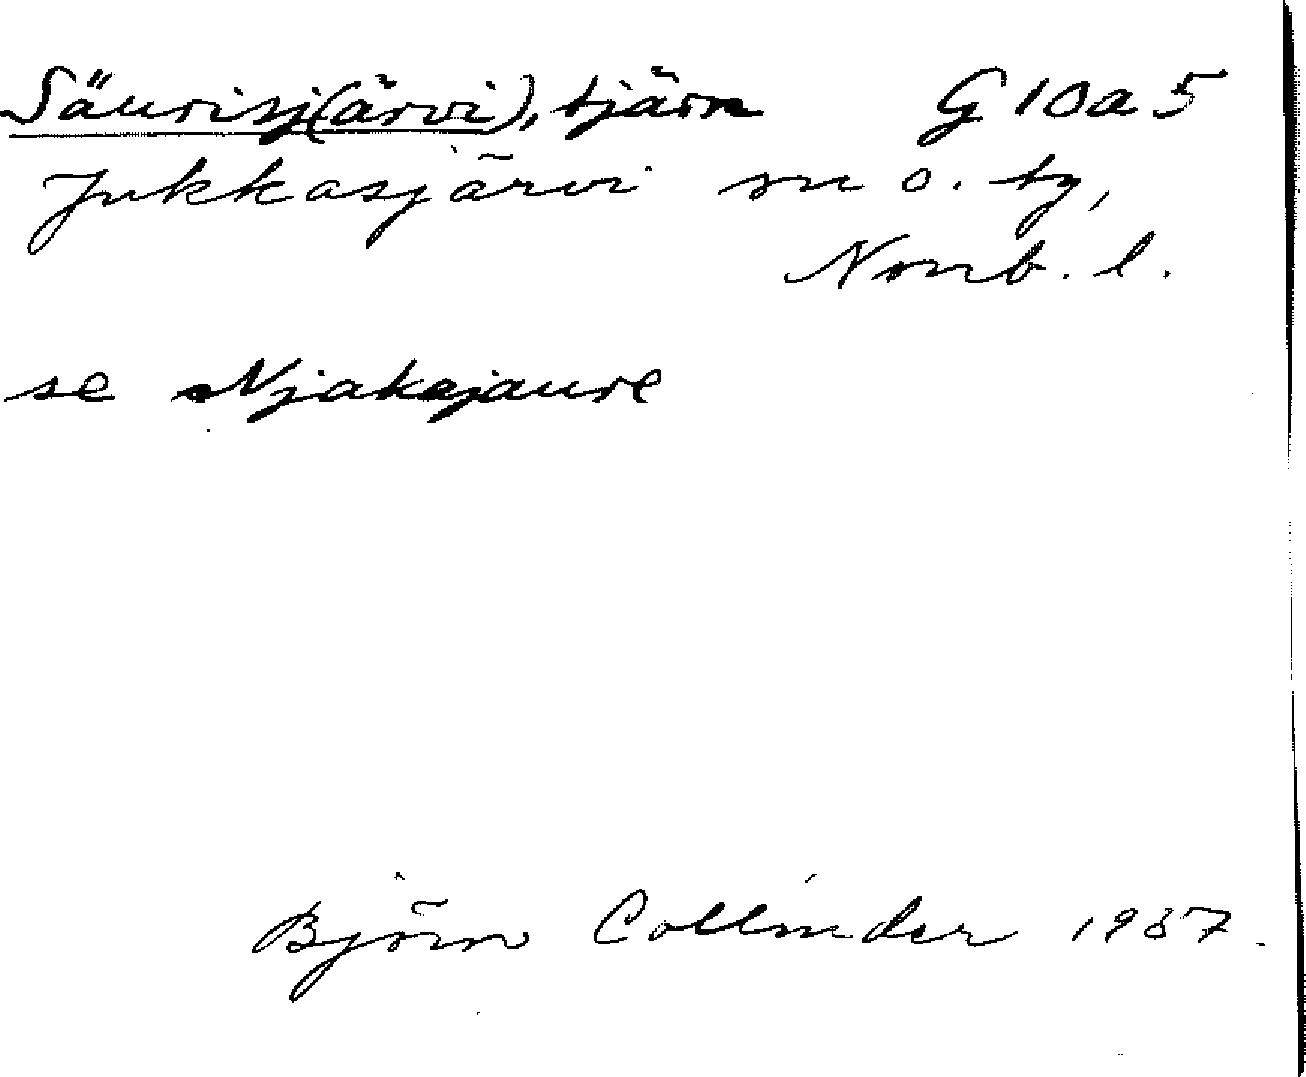 Säurisj(ärvi), tjärn G 10a 5
Jukkasjärvi sn o. tg,
Norrb. l.
se Njakajaure
Björn Collinder 1937.